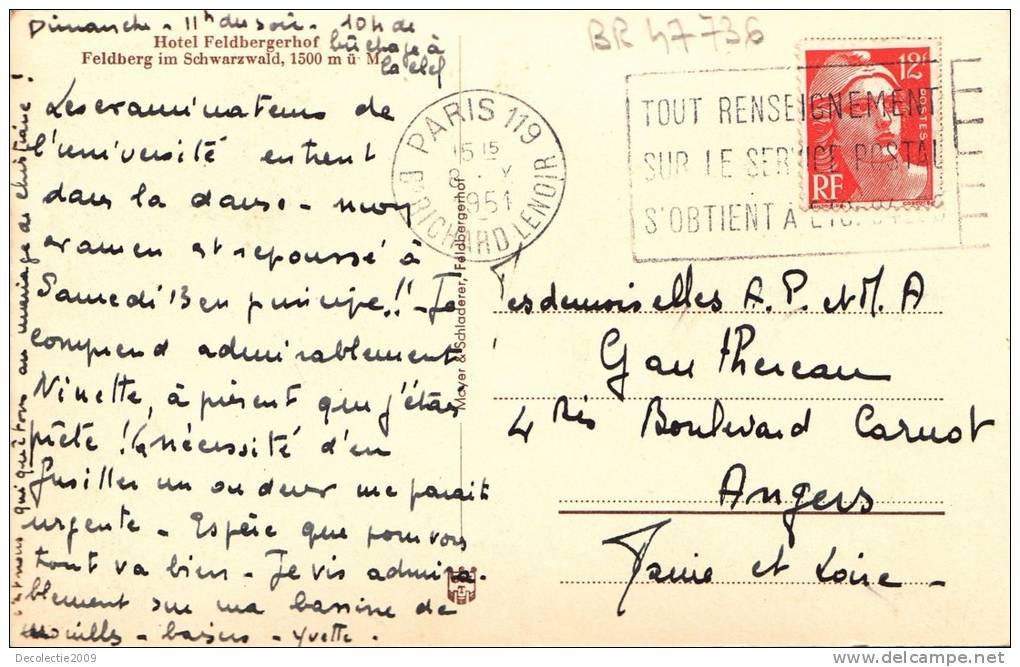 Dimanche - 11h du soir - 10h de
bûchage à
la clef
Hotel Feldbergerhof
Feldberg im Schwarzwald, 1500 m ü M
Les examinateurs de
l'université entrent
dans la danse - mon
examen est repoussé à
Samedi 13 en principe!! - Je
comprend admirablement
Ninette, à présent que j'étais
prête! la nécessité d'en
fusiller un ou deux me parait
urgente - Espère que pour vous
tout va bien - Je vis admira-
blement sur ma bassine de
nouilles - baisers - Yvette.
qui quêtons au mariage de christiane!
Mayer & Schladerer, Feldbergerhof
BR 47736
PARIS 119
15 15
8 . X
1951
Bd RICHARD LENOIR
TOUT RENSEIGNEMENT
SUR LE SERVICE POSTAL
S'OBTIENT À
12F
POSTES
RF
Mesdemoiselles A. P. et M. A
Gauthereau
4 Bis Boulevard Carnot
Angers
Maine et Loire -
Decolectie2009
www.delcampe.net